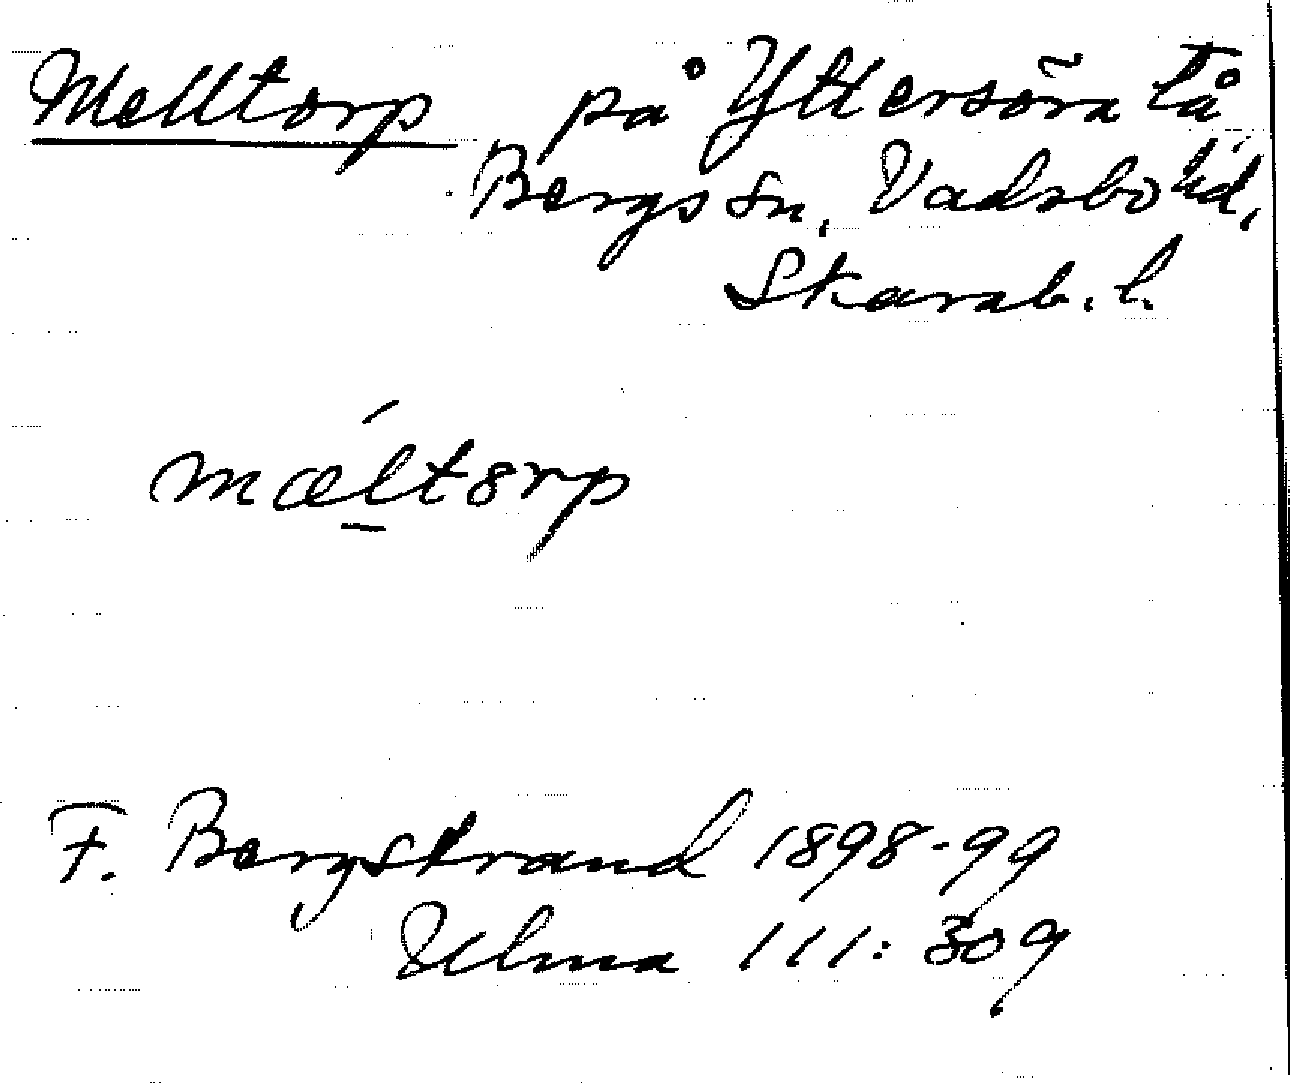 Melltorp på Yttersöra Tå
Bergs sn, Vadsbo hd,
Skarab. l.
mæ̀ltorp
F. Bergstrand 1898-99
Ulma 111:309